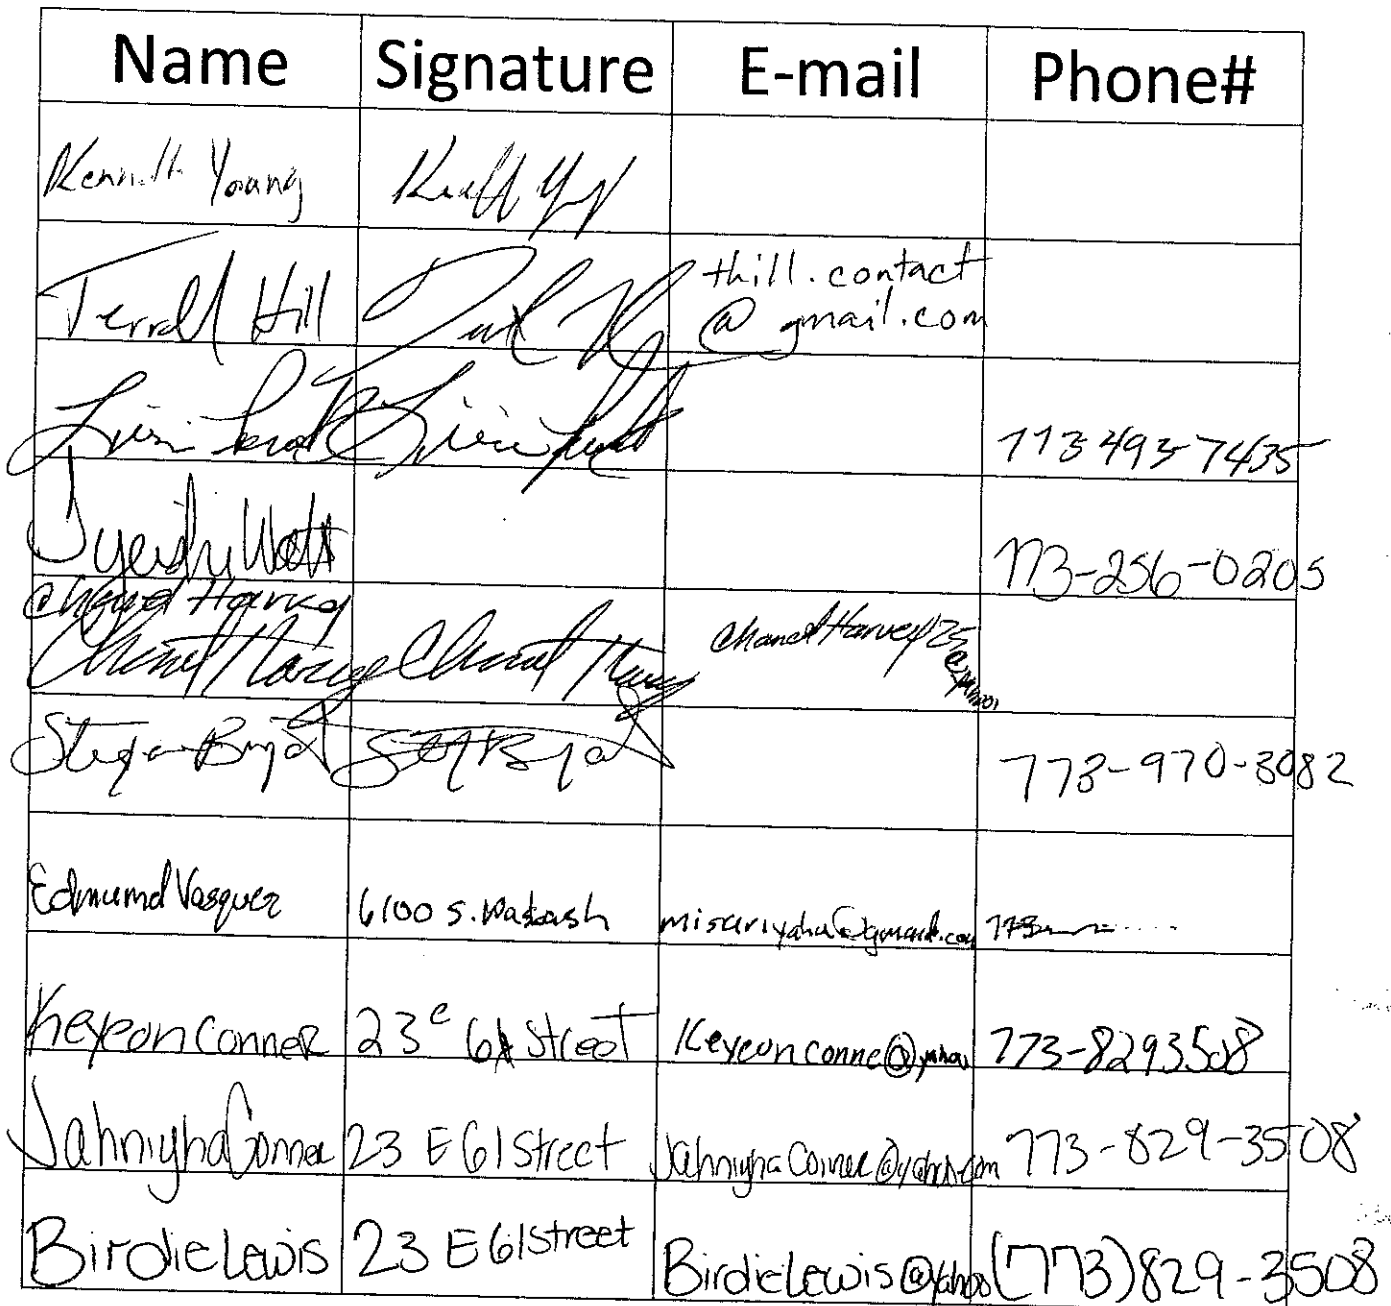 Name Signature E-mail Phone#
Kenneth Young
Terrell Hill thill.contact
@gmail.com
773 493 7435
773-256-0205
Chanel Harvey
Chanel Harvey Chanel Harvey ChanelHarvey25
@yahoo
Stefan Boyd 773-970-3082
Edmund Vasquez 6100 S. Wabash 773
Keyeon Conner 23 e 61 Street Keyeonconne@yahoo 773-8293508
Jahniyha Conner 23 E 61 Street JahniyhaConner@yahoo.com 773-829-3508
Birdie Lewis 23 E 61 Street BirdieLewis@yahoo (773)829-3508